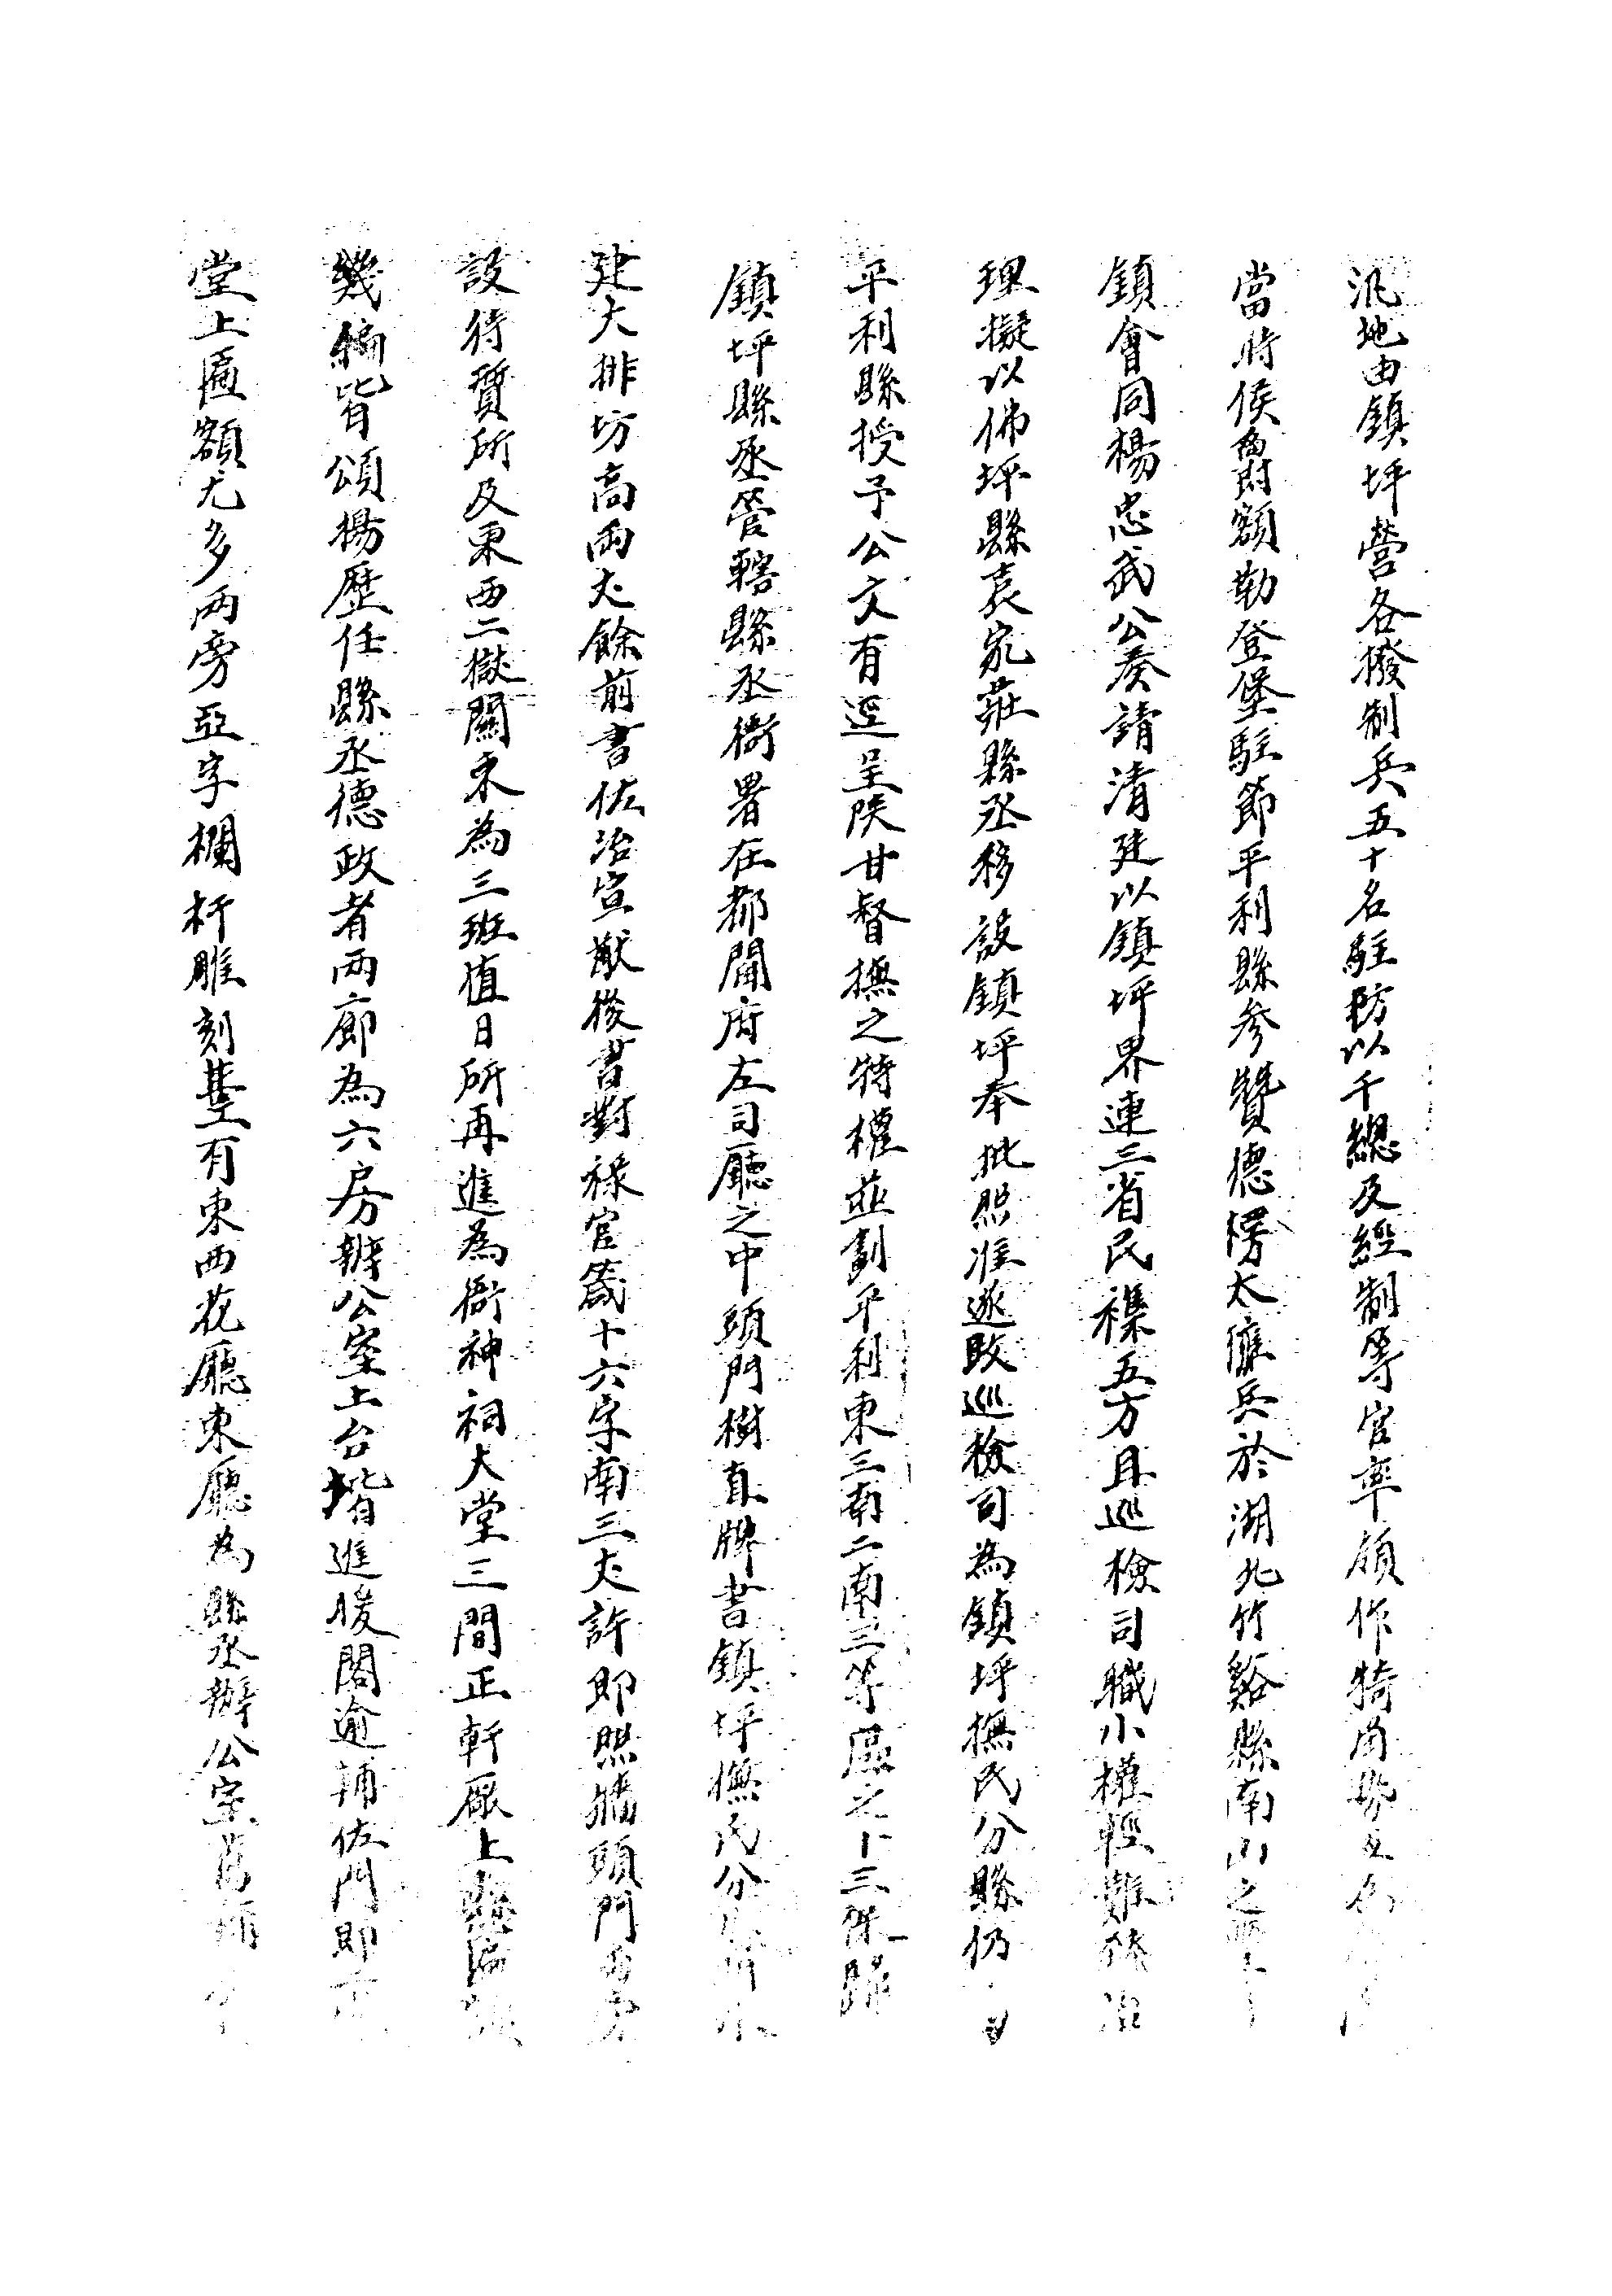 汛地由鎮坪營各撥制兵五十名駐防以千總及經制等官率領作犄角勢
當時侯爵額勒登堡駐節平利縣參贊德楞太廱兵於湖北竹谿縣南山之
鎮會同楊忠武公奏請清廷以鎮坪界連三省民襍五方且巡檢司職小權輕難務治
理擬以佛坪縣袁家莊縣丞移設鎮坪奉批照准遂改巡檢司為鎮坪撫民分縣仍
平利縣授予公文有逕呈陝甘督撫之特權並劃平利東三南二南三等區之十三保歸
鎮坪縣丞管轄縣丞衙署在都閫府左司廳之中頭門樹直牌書鎮坪撫民分
建大排坊高兩丈餘前書佐治宣猷後書對祿官箴十六字南三丈許即照牆頭門兩旁
設待質所及東西二獄關東為三班值日所再進為衙神祠大堂三間正軒廠上懸匾額
幾徧皆頌揚歷任縣丞德政者兩廊為六房辦公室上台堦進暖閣逾輔佐門即
堂上匾額尤多兩旁亞字欄杆雕刻基工有東西花廳東廳為縣丞辦公室